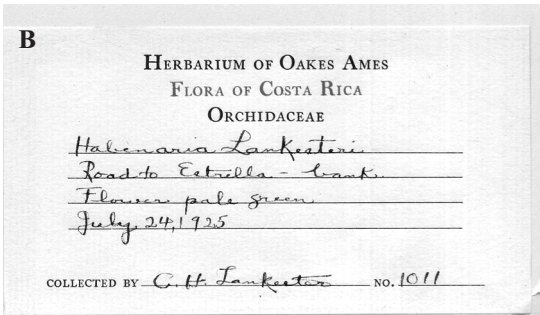 B
HERBARIUM OF OAKES AMES
FLORA OF COSTA RICA
ORCHIDACEAE
Habenaria Lankesteri
Road to Estrella - bank
Flowers pale green
July 24, 1925
COLLECTED BY C. H. Lankester NO. 1011